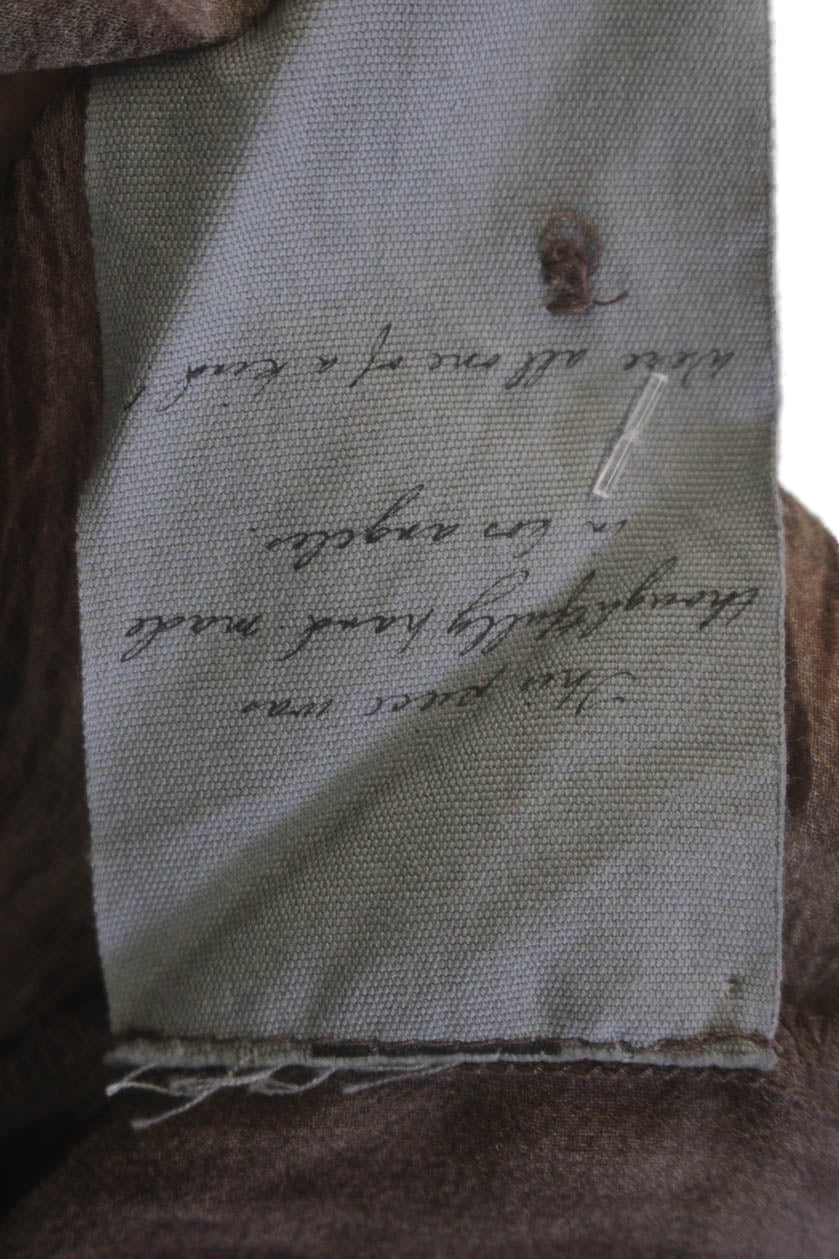 This piece was
thoughtfully hand-made
in los angeles.
we're all one of a kind!